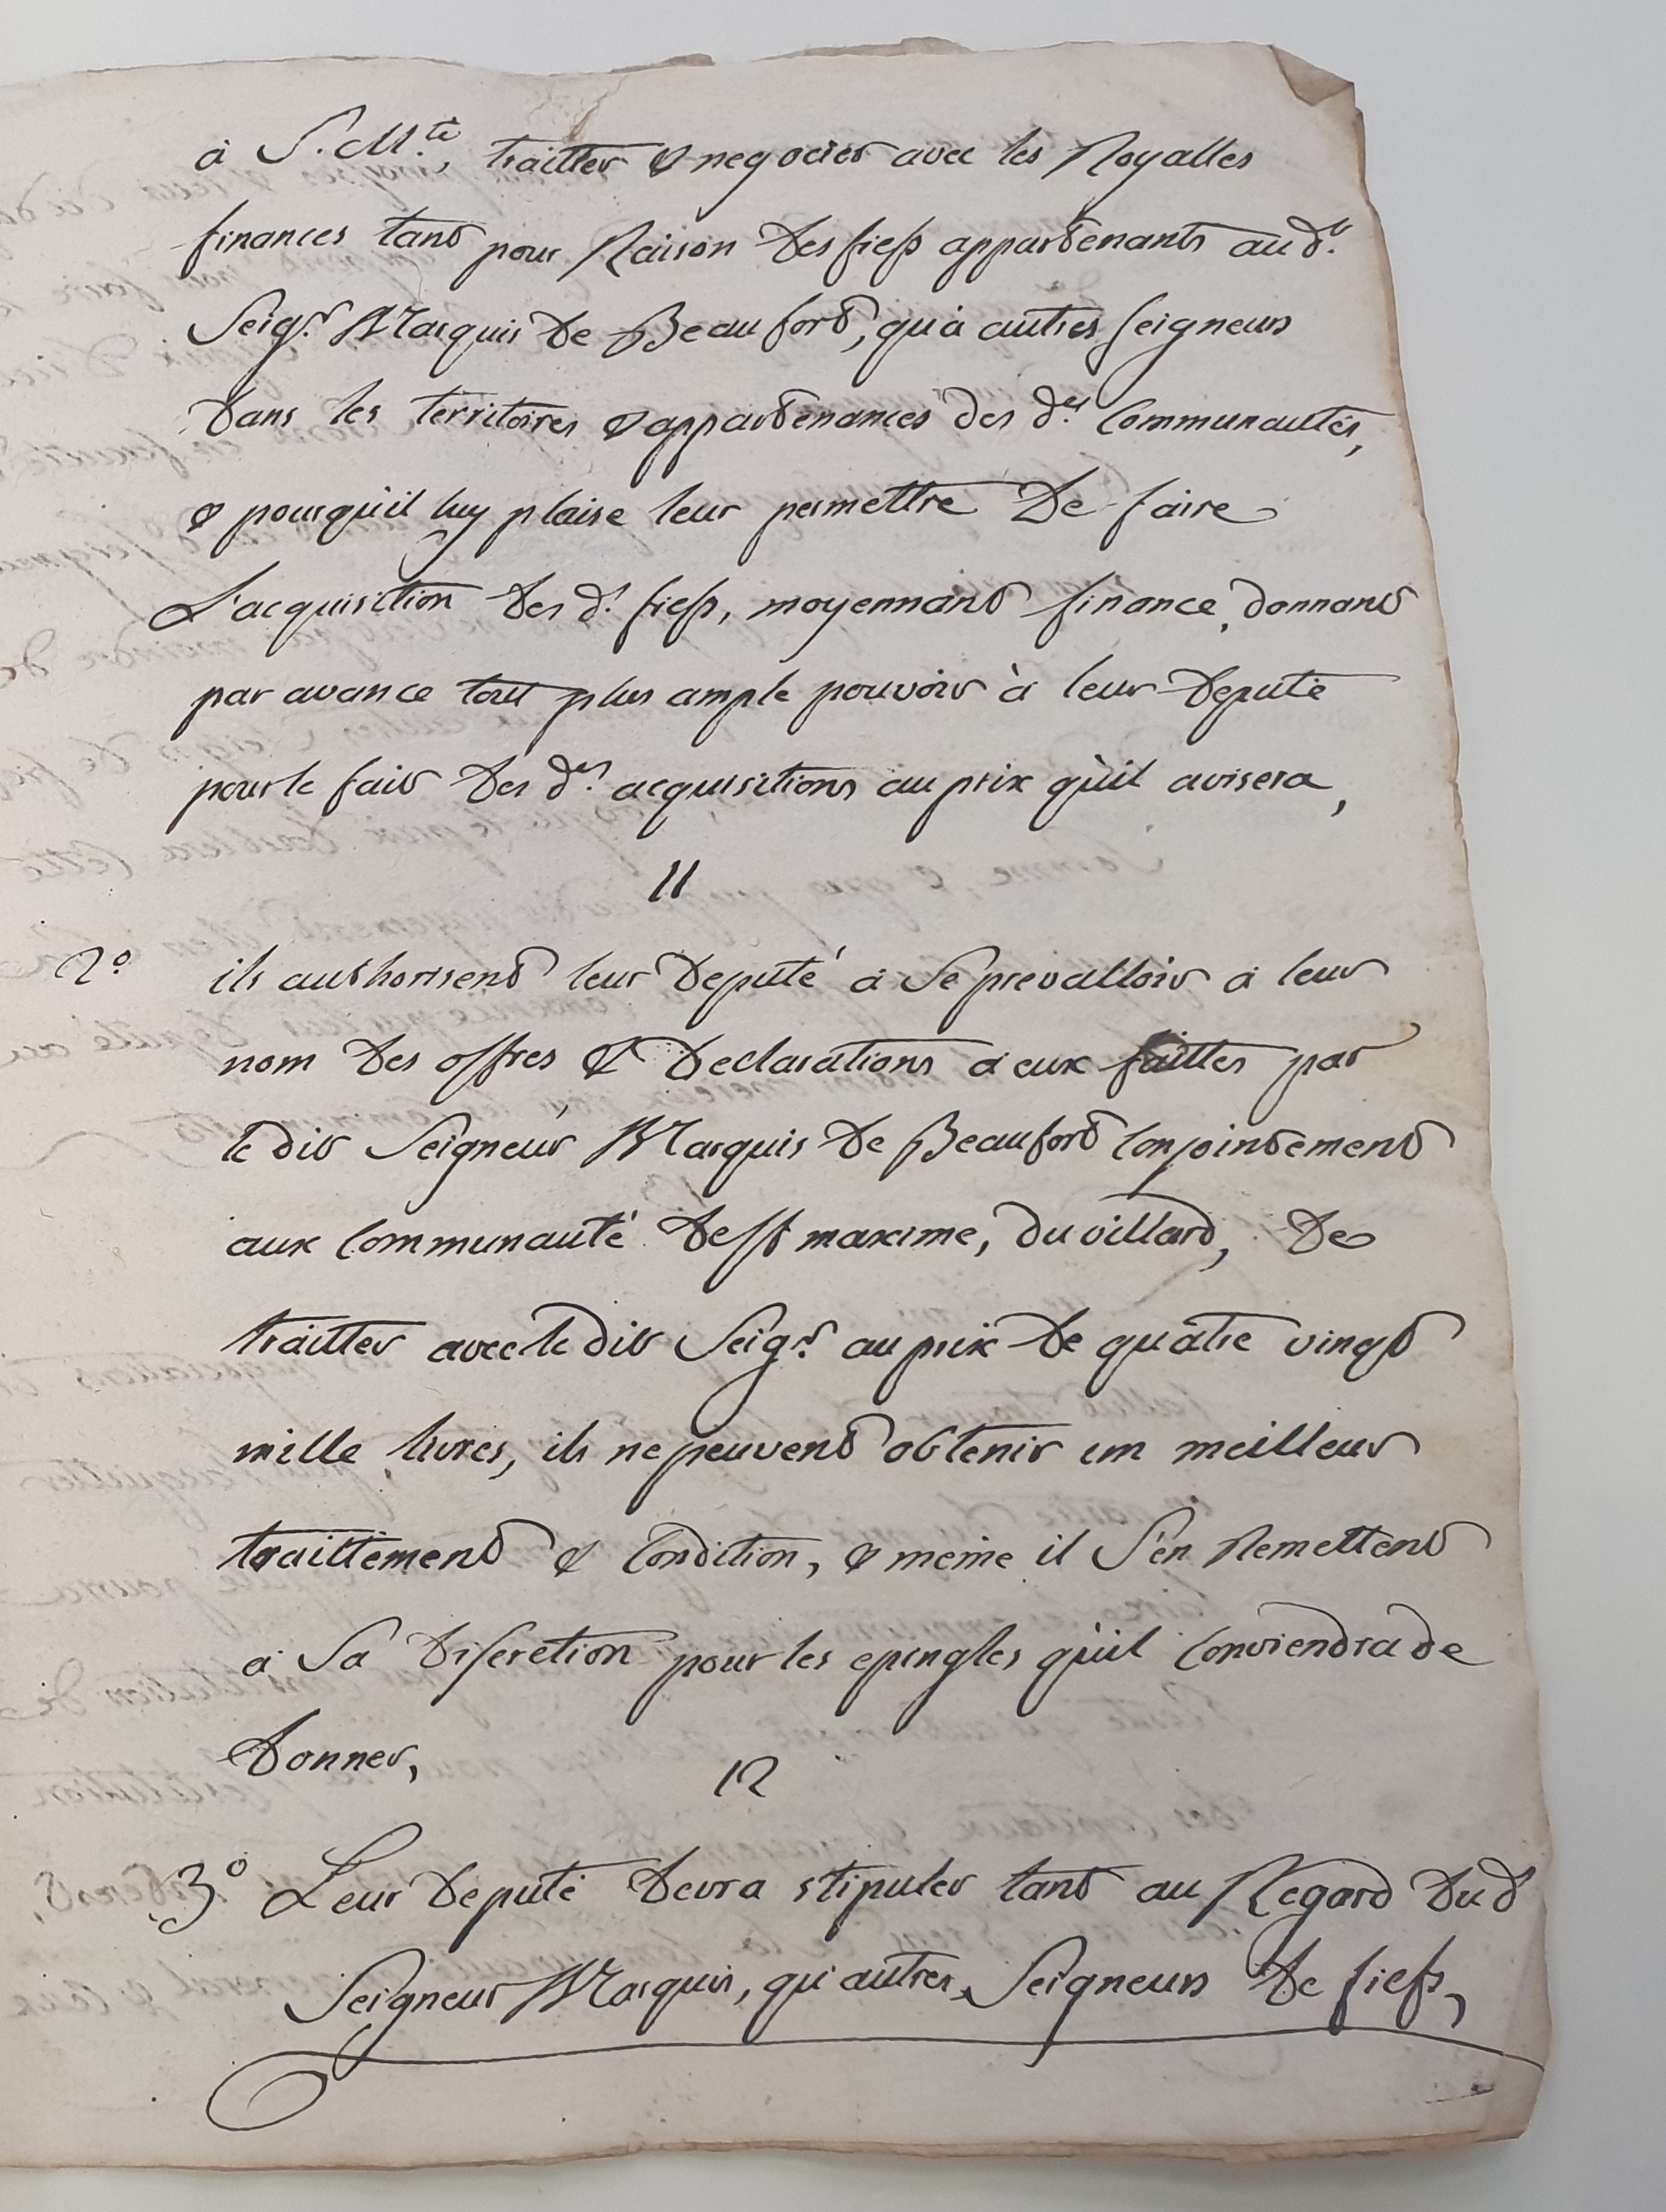 à S. M.té, traitter & negocier avec les Royalles
finances tant pour Raison des fiefs appartenants au d.t
Seig.r Marquis de Beaufort, qu'à autres seigneurs
dans les territoires & appartenances des d.es Communautés,
& pourqu'il luy plaise leur permettre de faire
L'acquisition des d.s fiefs, moyennant finance, donnant
par avance tout plus ample pouvoir à leur deputé
pour le fait des d.es acquisitions au prix qu'il avisera,
11
2° ils authorisent leur deputé à se prevalloir à leur
nom des offres & declarations à eux faittes par
le dit Seigneur Marquis de Beaufort Conjointement
aux Communauté de St maxime, du villard, de
traitter avec le dit Seig.r au prix de quatre vingt
mille livres, ils ne peuvent obtenir un meilleur
traittement & Condition, & meme il s'en Remettent
à sa discretion pour les epingles qu'il Conviendra de
donner,
12
3° Leur deputé devra stipuler tant au Regard du d
Seigneur Marquis, qu'autres Seigneurs de fiefs,